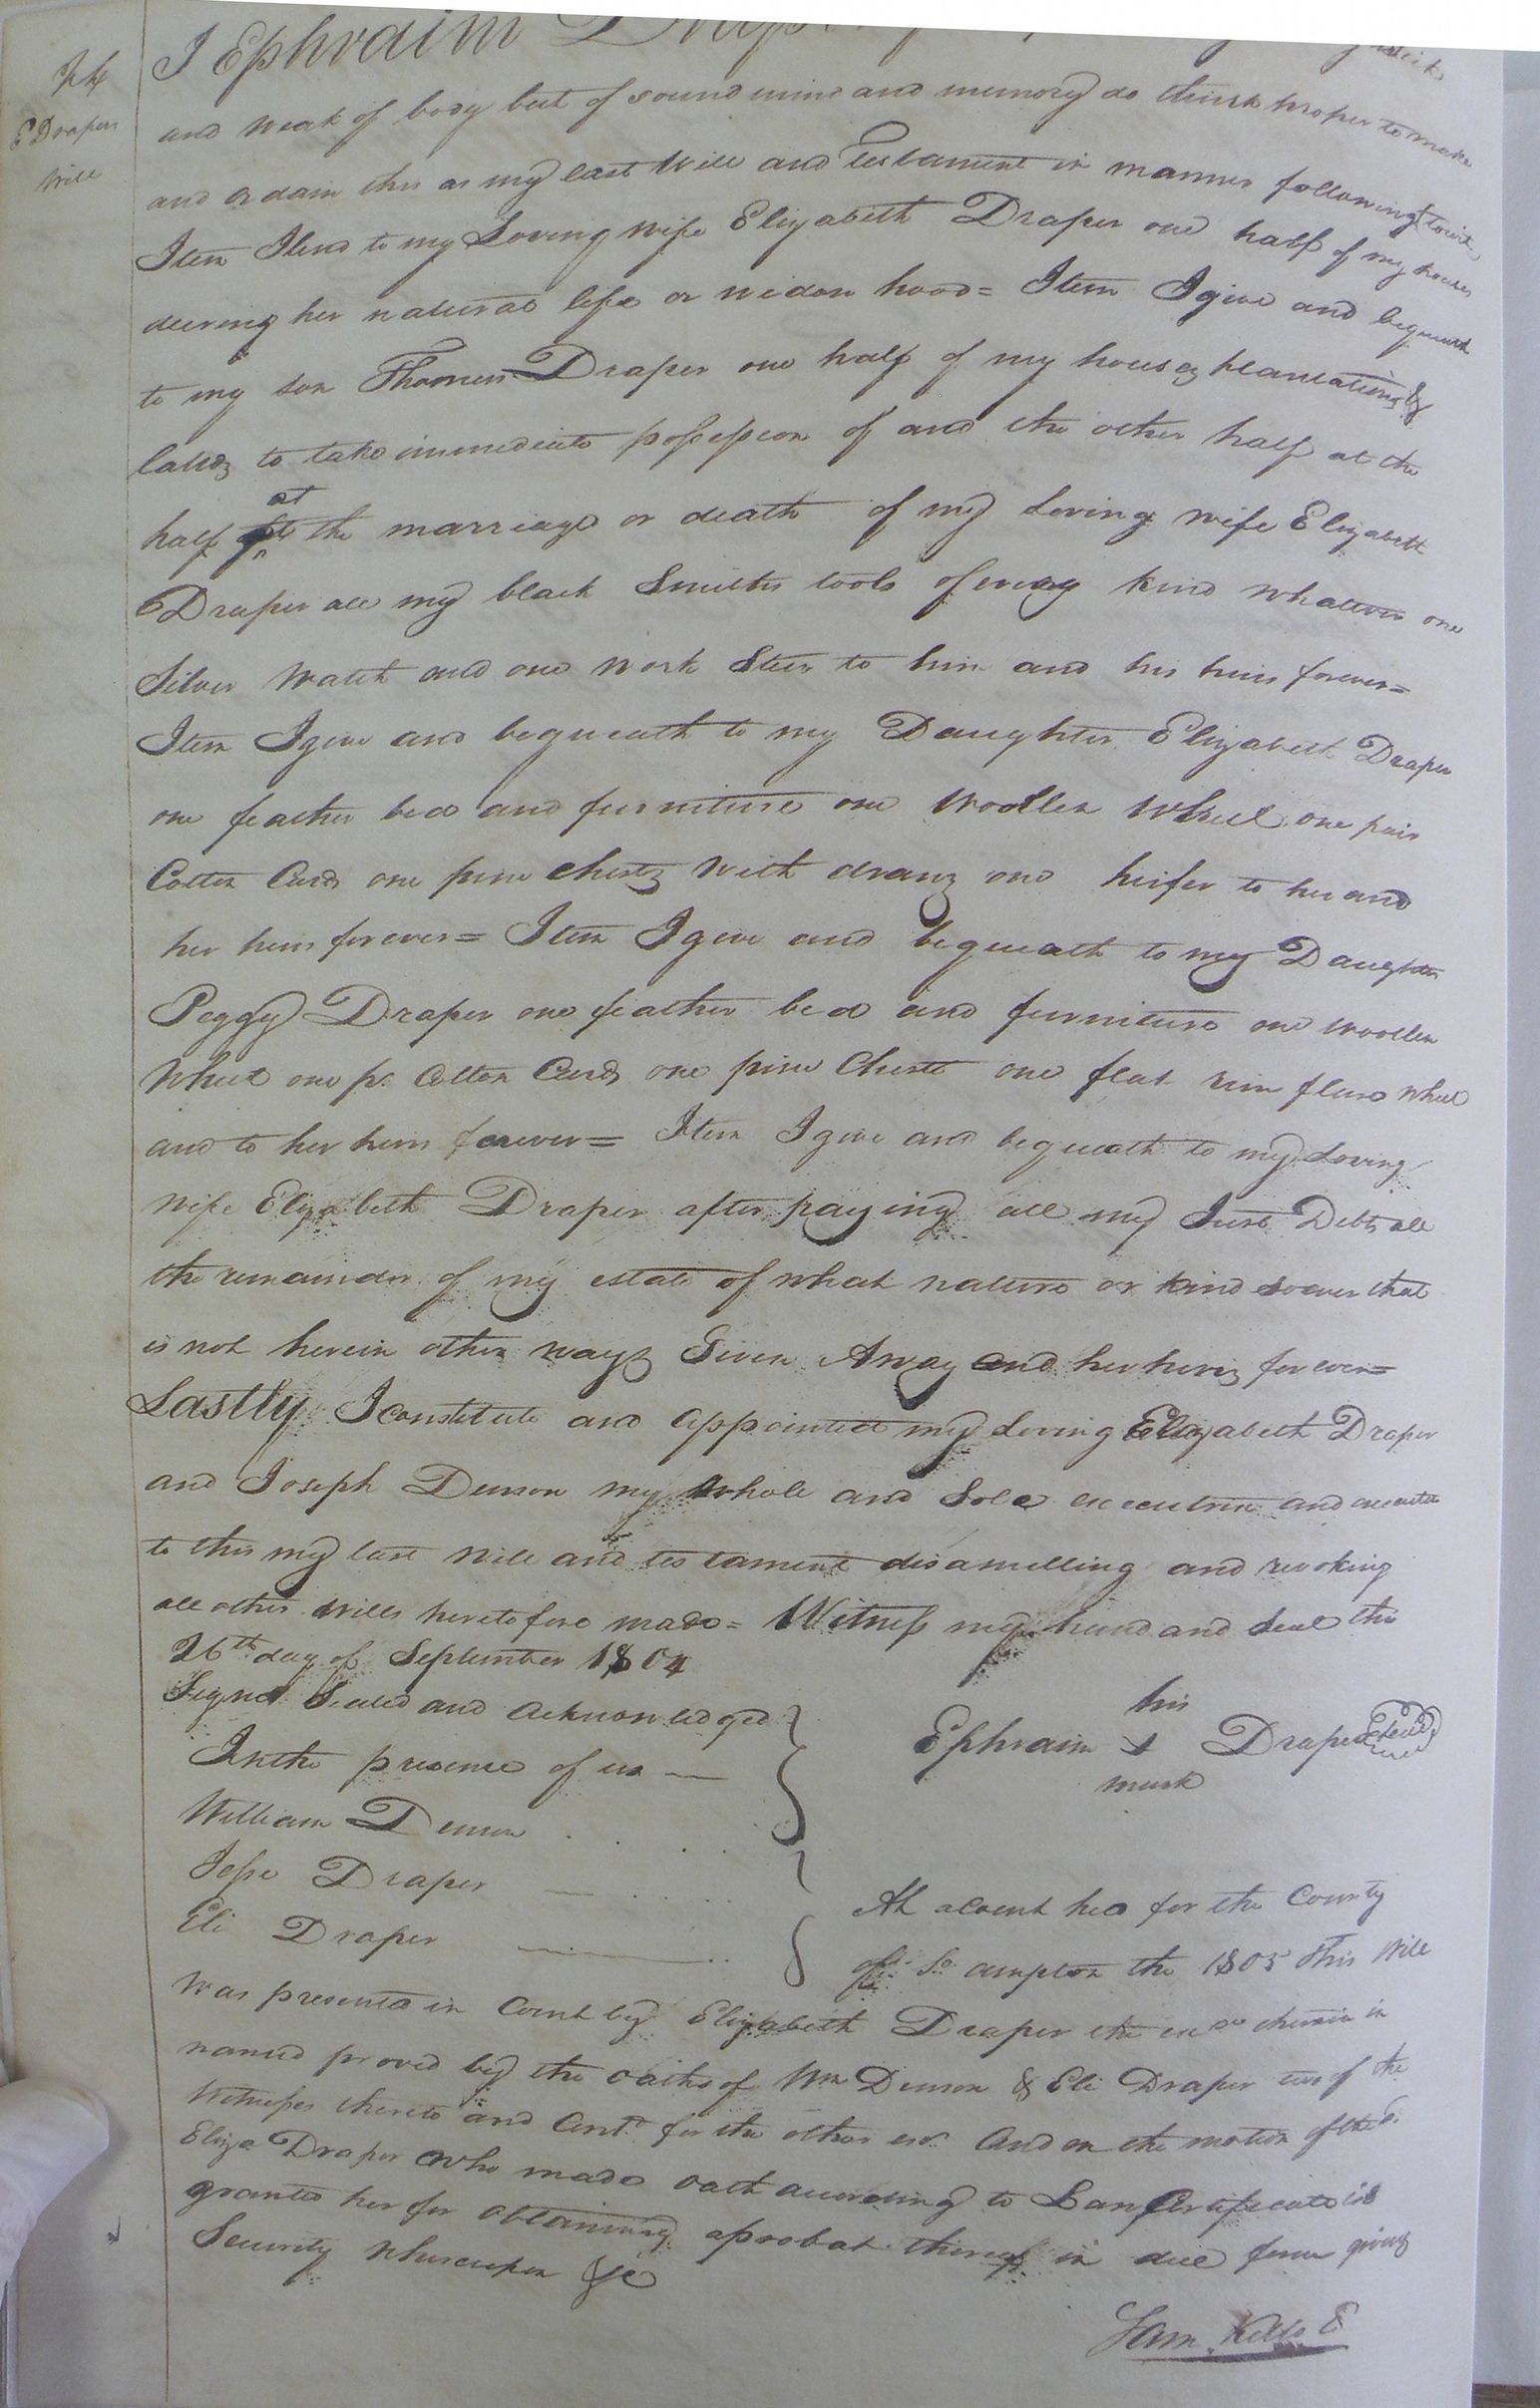 24
E Drapers
Will
I Ephraim Draper
and weak of body but of sound mind and memory do think proper to make
and ordain this as my last Will and Testament in manner following (towit)
Item I lend to my Loving wife Elizabeth Draper one half of my houses
during her natural life or widow hood = Item I give and bequeath
to my son Thomas Draper one half of my houses plantations &
lands to take immediate possession of and the other half at the
half at the marriage or death of my Loving wife Elizabeth
Draper all my black Smiths tools of every kind whatever one
Silver Watch and one work Steer to him and his heirs forever =
Item I give and bequeath to my Daughter Elizabeth Draper
one feather bed and furniture one Woollen Wheel one pair
Cotten Cards one pine chest with draws one heifer to her and
her heirs forever = Item I give and bequeath to my Daughter
Peggy Draper one feather bed and furniture one woollen
Wheel one pr. Cotten Cards one pine Chest one flat rim flax wheel
and to her heirs forever = Item I give and bequeath to my Loving
wife Elizabeth Draper after paying all my Just Debts all
the remainder of my estate of what nature or kind soever that
is not herein other ways Given Away and her heirs forever =
Lastly I constitute and appointed my Loving Elizabeth Draper
and Joseph Denson my whole and Sole executrix and executor
to this my last will and testament disanulling and revoking
all other wills heretofore made = Witness my hand and seal this
26th day of September 1804
Signed Sealed and acknowledged
In the presence of us —
William Denson
Jesse Draper
Eli Draper
his
Ephraim + Draper (Seal)
mark
At a Court held for the County
of So. ampton the 1805 This Will
was presented in Court by Elizabeth Draper the exx. therein in
named proved by the oaths of Wm Denson & Eli Draper two of the
Witnesses thereto and Contd. for the other exr. And on the motion of the sd.
Eliza Draper who made oath according to Law Certificate is
granted her for obtaining a probat thereof in due form giving
Security whereupon &c
Sam. Kello C